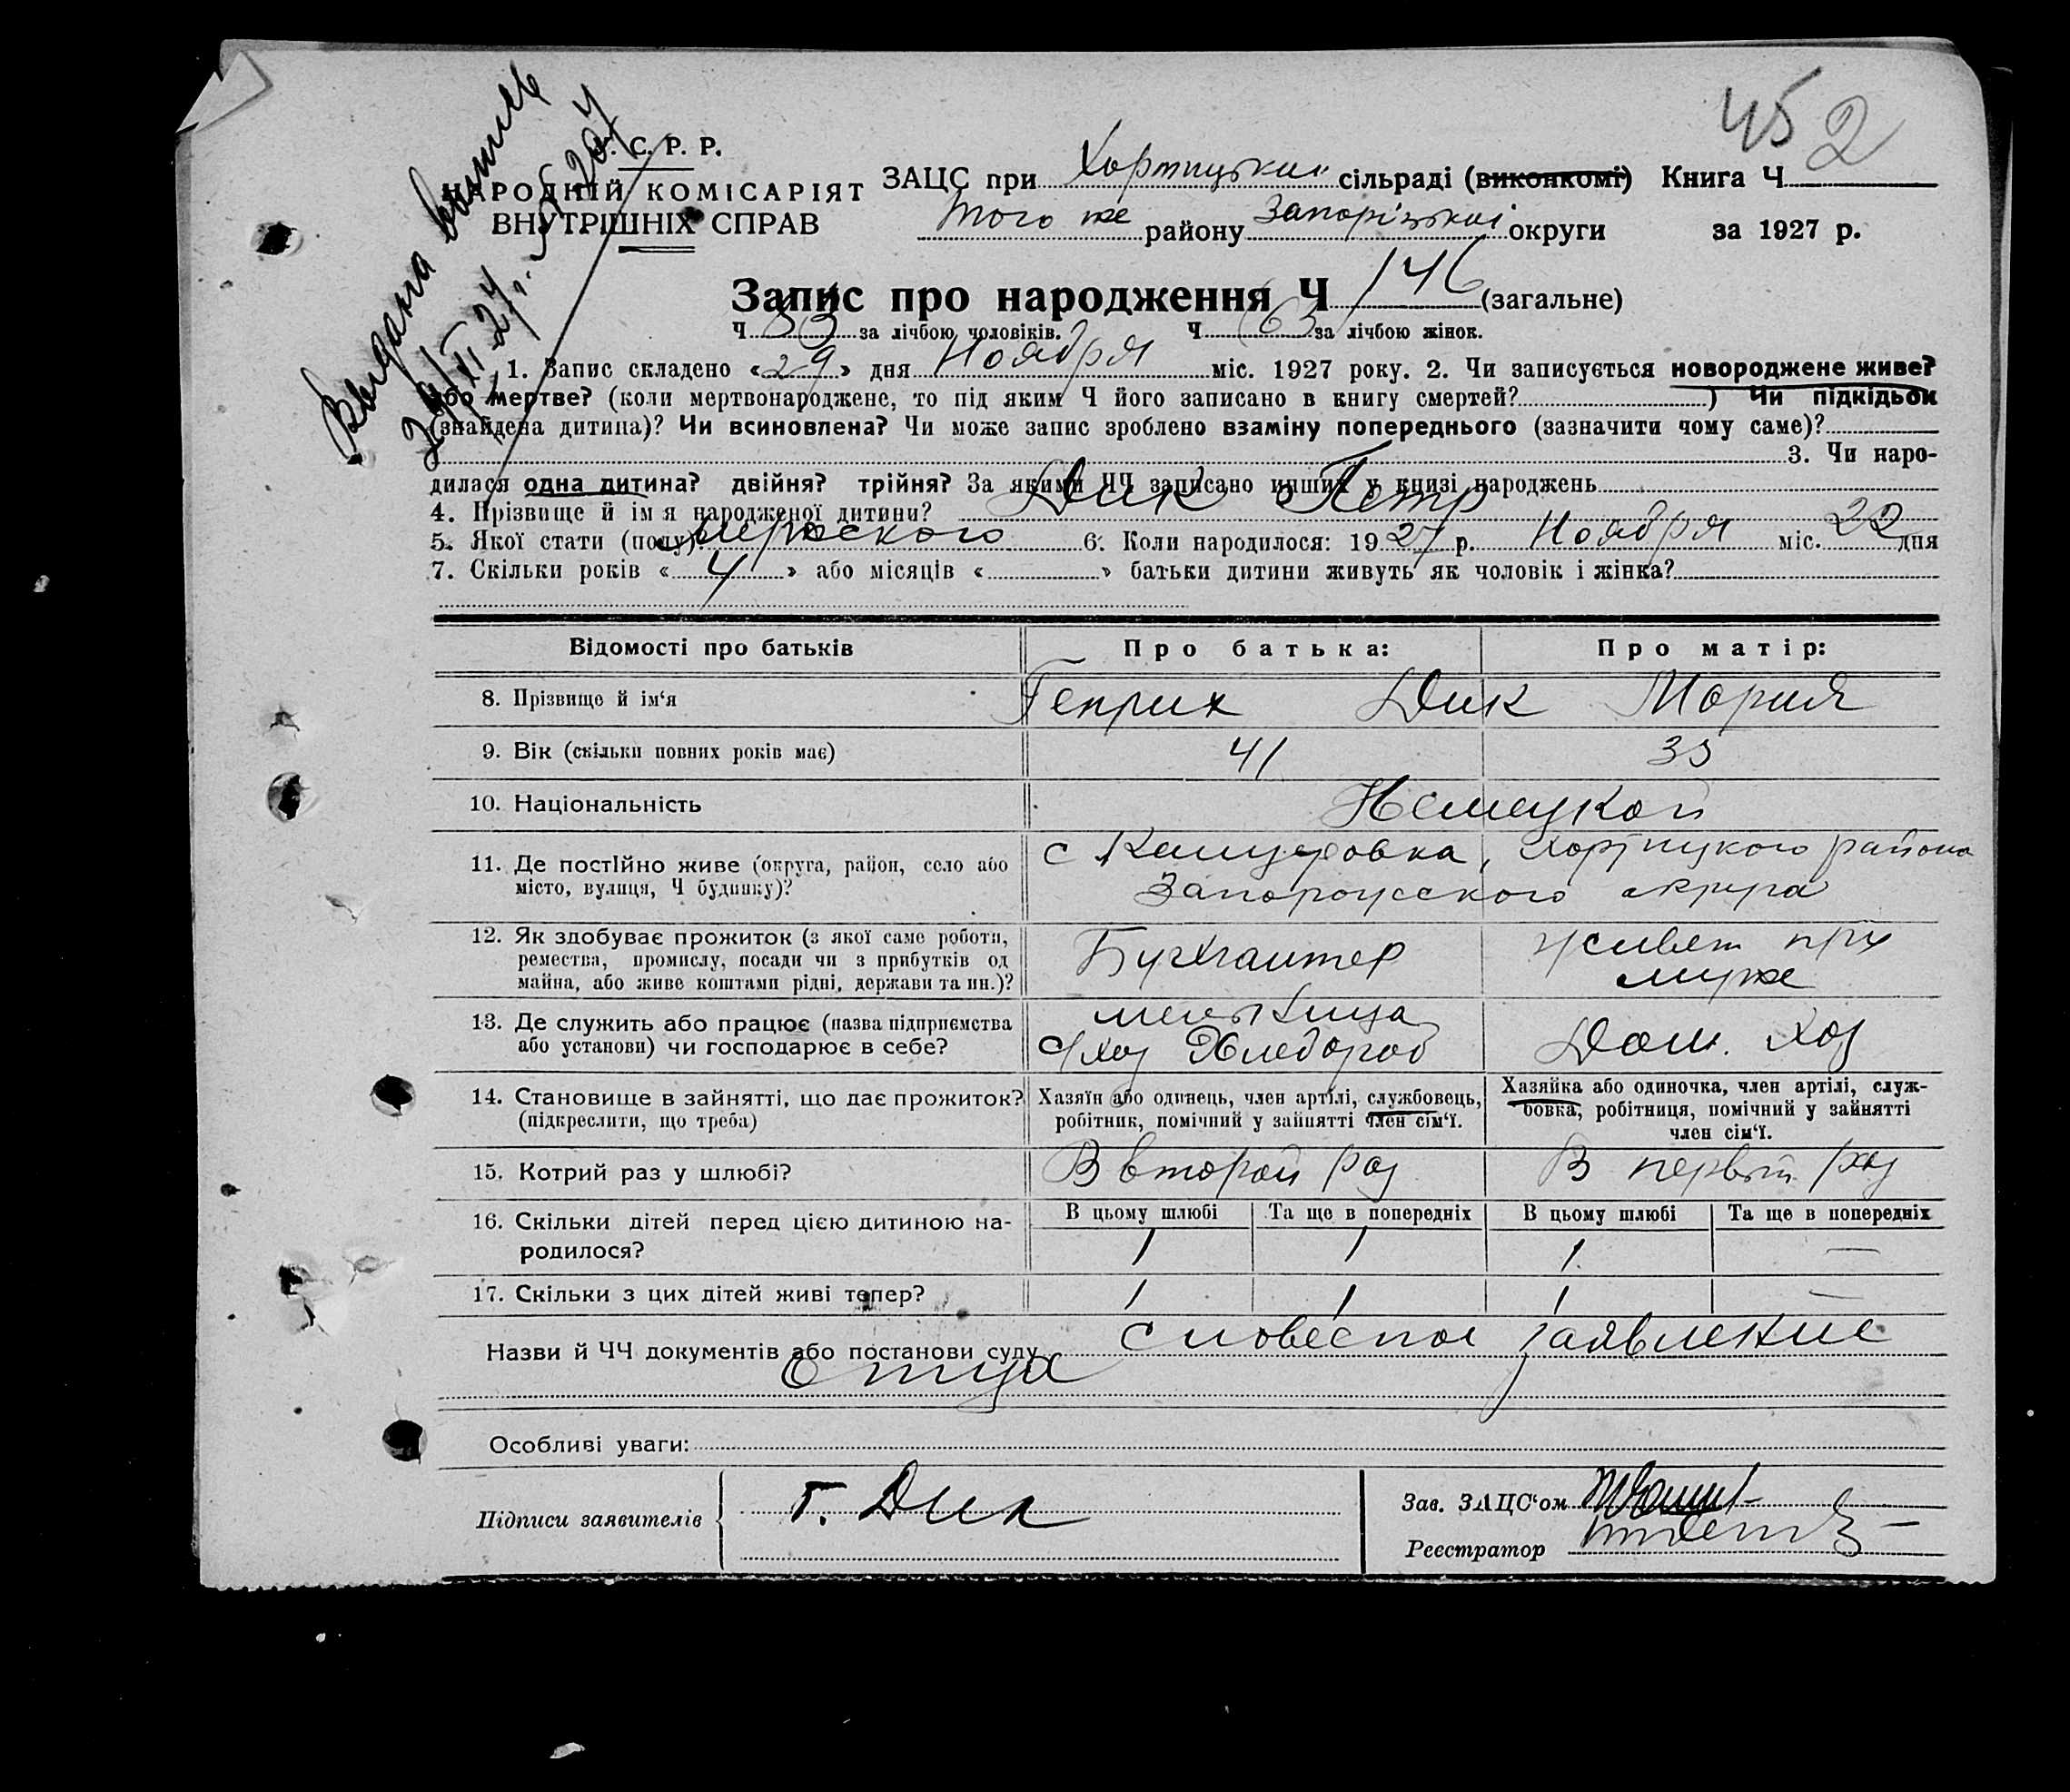 45 2
Выдана выпись
29/XI 27 г. № 204
У. С. Р. Р.
НАРОДНІЙ КОМІСАРІЯТ
ВНУТРІШНІХ СПРАВ
ЗАЦС при Хортицькій сільраді (виконкомі) Книга Ч
того же району Запорізької округи за 1927 р.
Запис про народження Ч 146 (загальне)
Ч 83 за лічбою чоловіків. Ч 63 за лічбою жінок.
1. Запис складено «29» дня Ноября міс. 1927 року. 2. Чи записується новороджене живе?
або мертве? (коли мертвонароджене, то під яким Ч його записано в книгу смертей? ) Чи підкідьок
(знайдена дитина)? Чи всиновлена? Чи може запис зроблено взаміну попереднього (зазначити чому саме)?
3. Чи наро-
дилася одна дитина? двійня? трійня? За якими ЧЧ записано инших у книзі народжень
4. Прізвище й ім я народженої дитини? Дик Петр
5. Якої стати (полу) мужского 6. Коли народилося: 1927 р. Ноября міс. 22 дня
7. Скільки років «4» або місяців « » батьки дитини живуть як чоловік і жінка?
Відомості про батьків Про батька: Про матір:
8. Прізвище й ім'я Генрих Дик Мария
9. Вік (скільки повних років має) 41 35
10. Національність Немецкой
11. Де постійно живе (округа, район, село або с Канцеровка, Хортицкого района
місто, вулиця, Ч будинку)? Запорожского округа
12. Як здобуває прожиток (з якої саме роботи, Бухгалтер живет при
ремества, промислу, посади чи з прибутків од муже
майна, або живе коштами рідні, держави та ин.)?
13. Де служить або працює (назва підприємства мельница
або установи) чи господарює в себе? с/хоз Хлебороб Дом. Хоз
14. Становище в зайнятті, що дає прожиток? Хазяїн або одинець, член артілі, службовець, Хазяйка або одиночка, член артілі, служ-
(підкреслити, що треба) робітник, помічний у зайнятті член сім'ї. бовка, робітниця, помічний у зайнятті
член сім'ї.
15. Котрий раз у шлюбі? В второй раз В первый раз
16. Скільки дітей перед цією дитиною на- В цьому шлюбі Та ще в попередніх В цьому шлюбі Та ще в попередніх
родилося? 1 1 1 —
17. Скільки з цих дітей живі тепер? 1 1 1 —
Назви й ЧЧ документів або постанови суду словесное заявление
Отца
Особливі уваги:
Підписи заявителів Г. Дик
Зав. ЗАЦС'ом
Реєстратор